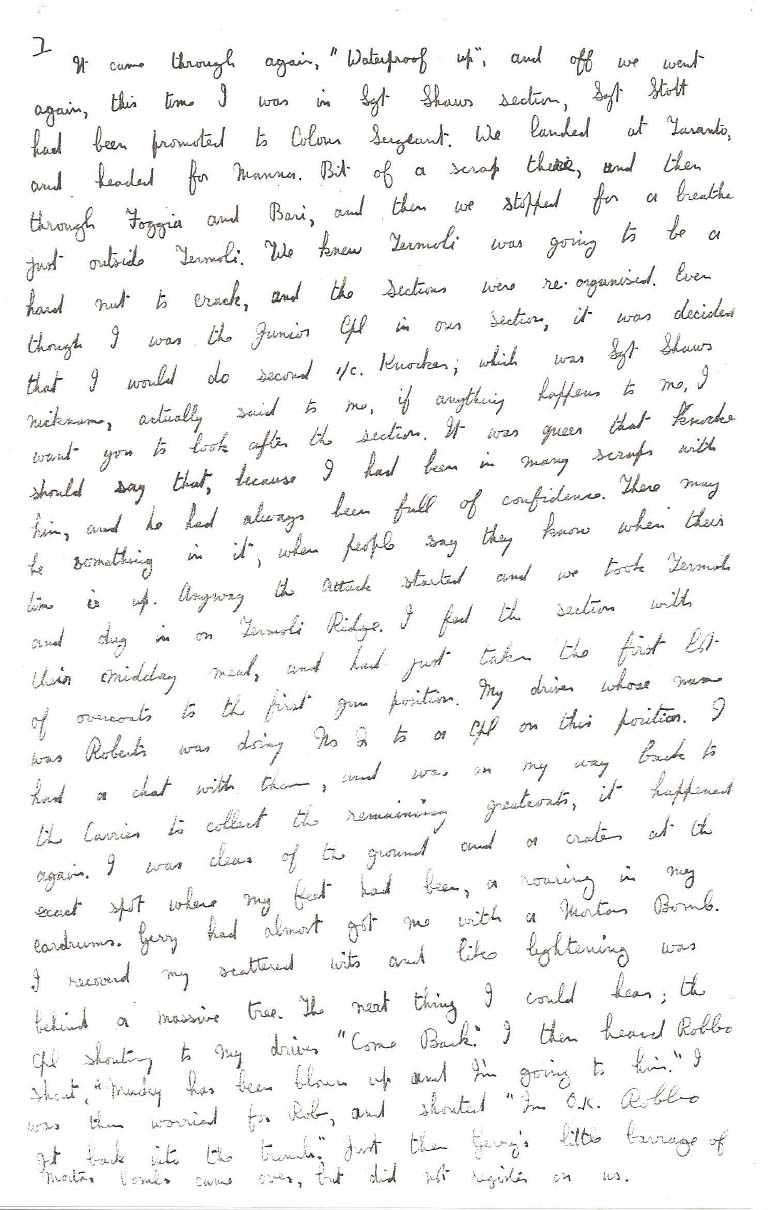 7
It came through again, "Waterproof up", and off we went
again, this time I was in Sgt Shaws section, Sgt Stott
had been promoted to Colour Sergeant. We landed at Taranto,
and headed for Manna. Bit of a scrap there, and then
through Foggia and Bari, and then we stopped for a breathe
just outside Termoli. We knew Termoli was going to be a
hard nut to crack, and the sections were re-organised. Even
though I was the Junior Cpl in our section, it was decided
that I would do second i/c. Knocker; which was Sgt Shaws
nickname, actually said to me, if anything happens to me, I
want you to look after the section. It was queer that Knocke
should say that, because I had been in many scraps with
him, and he had always been full of confidence. There may
be something in it, when people say they know when their
time is up. Anyway the attack started and we took Termoli
and dug in on Termoli Ridge. I fed the section with
their midday meal, and had just taken the first lot
of overcoats to the first gun position. My driver whose name
was Roberts was doing No 2 to a Cpl on this position. I
had a chat with them, and was on my way back to
the Carrier to collect the remaining greatcoats, it happened
again. I was clear of the ground and a crater at the
exact spot where my feet had been, a roaring in my
eardrums. Gerry had almost got me with a Mortar Bomb.
I recoverd my scattered wits and like lightening was
behind a massive tree. The next thing I could hear; the
Cpl shouting to my driver "Come Back." I then heard Robbo
shout, "Muday has been blown up and I'm going to him." I
was then worried for Rob, and shouted "I'm O.K. Robbo
get back into the trench." Just then Gerry's little barrage of
Mortar bombs came over, but did not register on us.